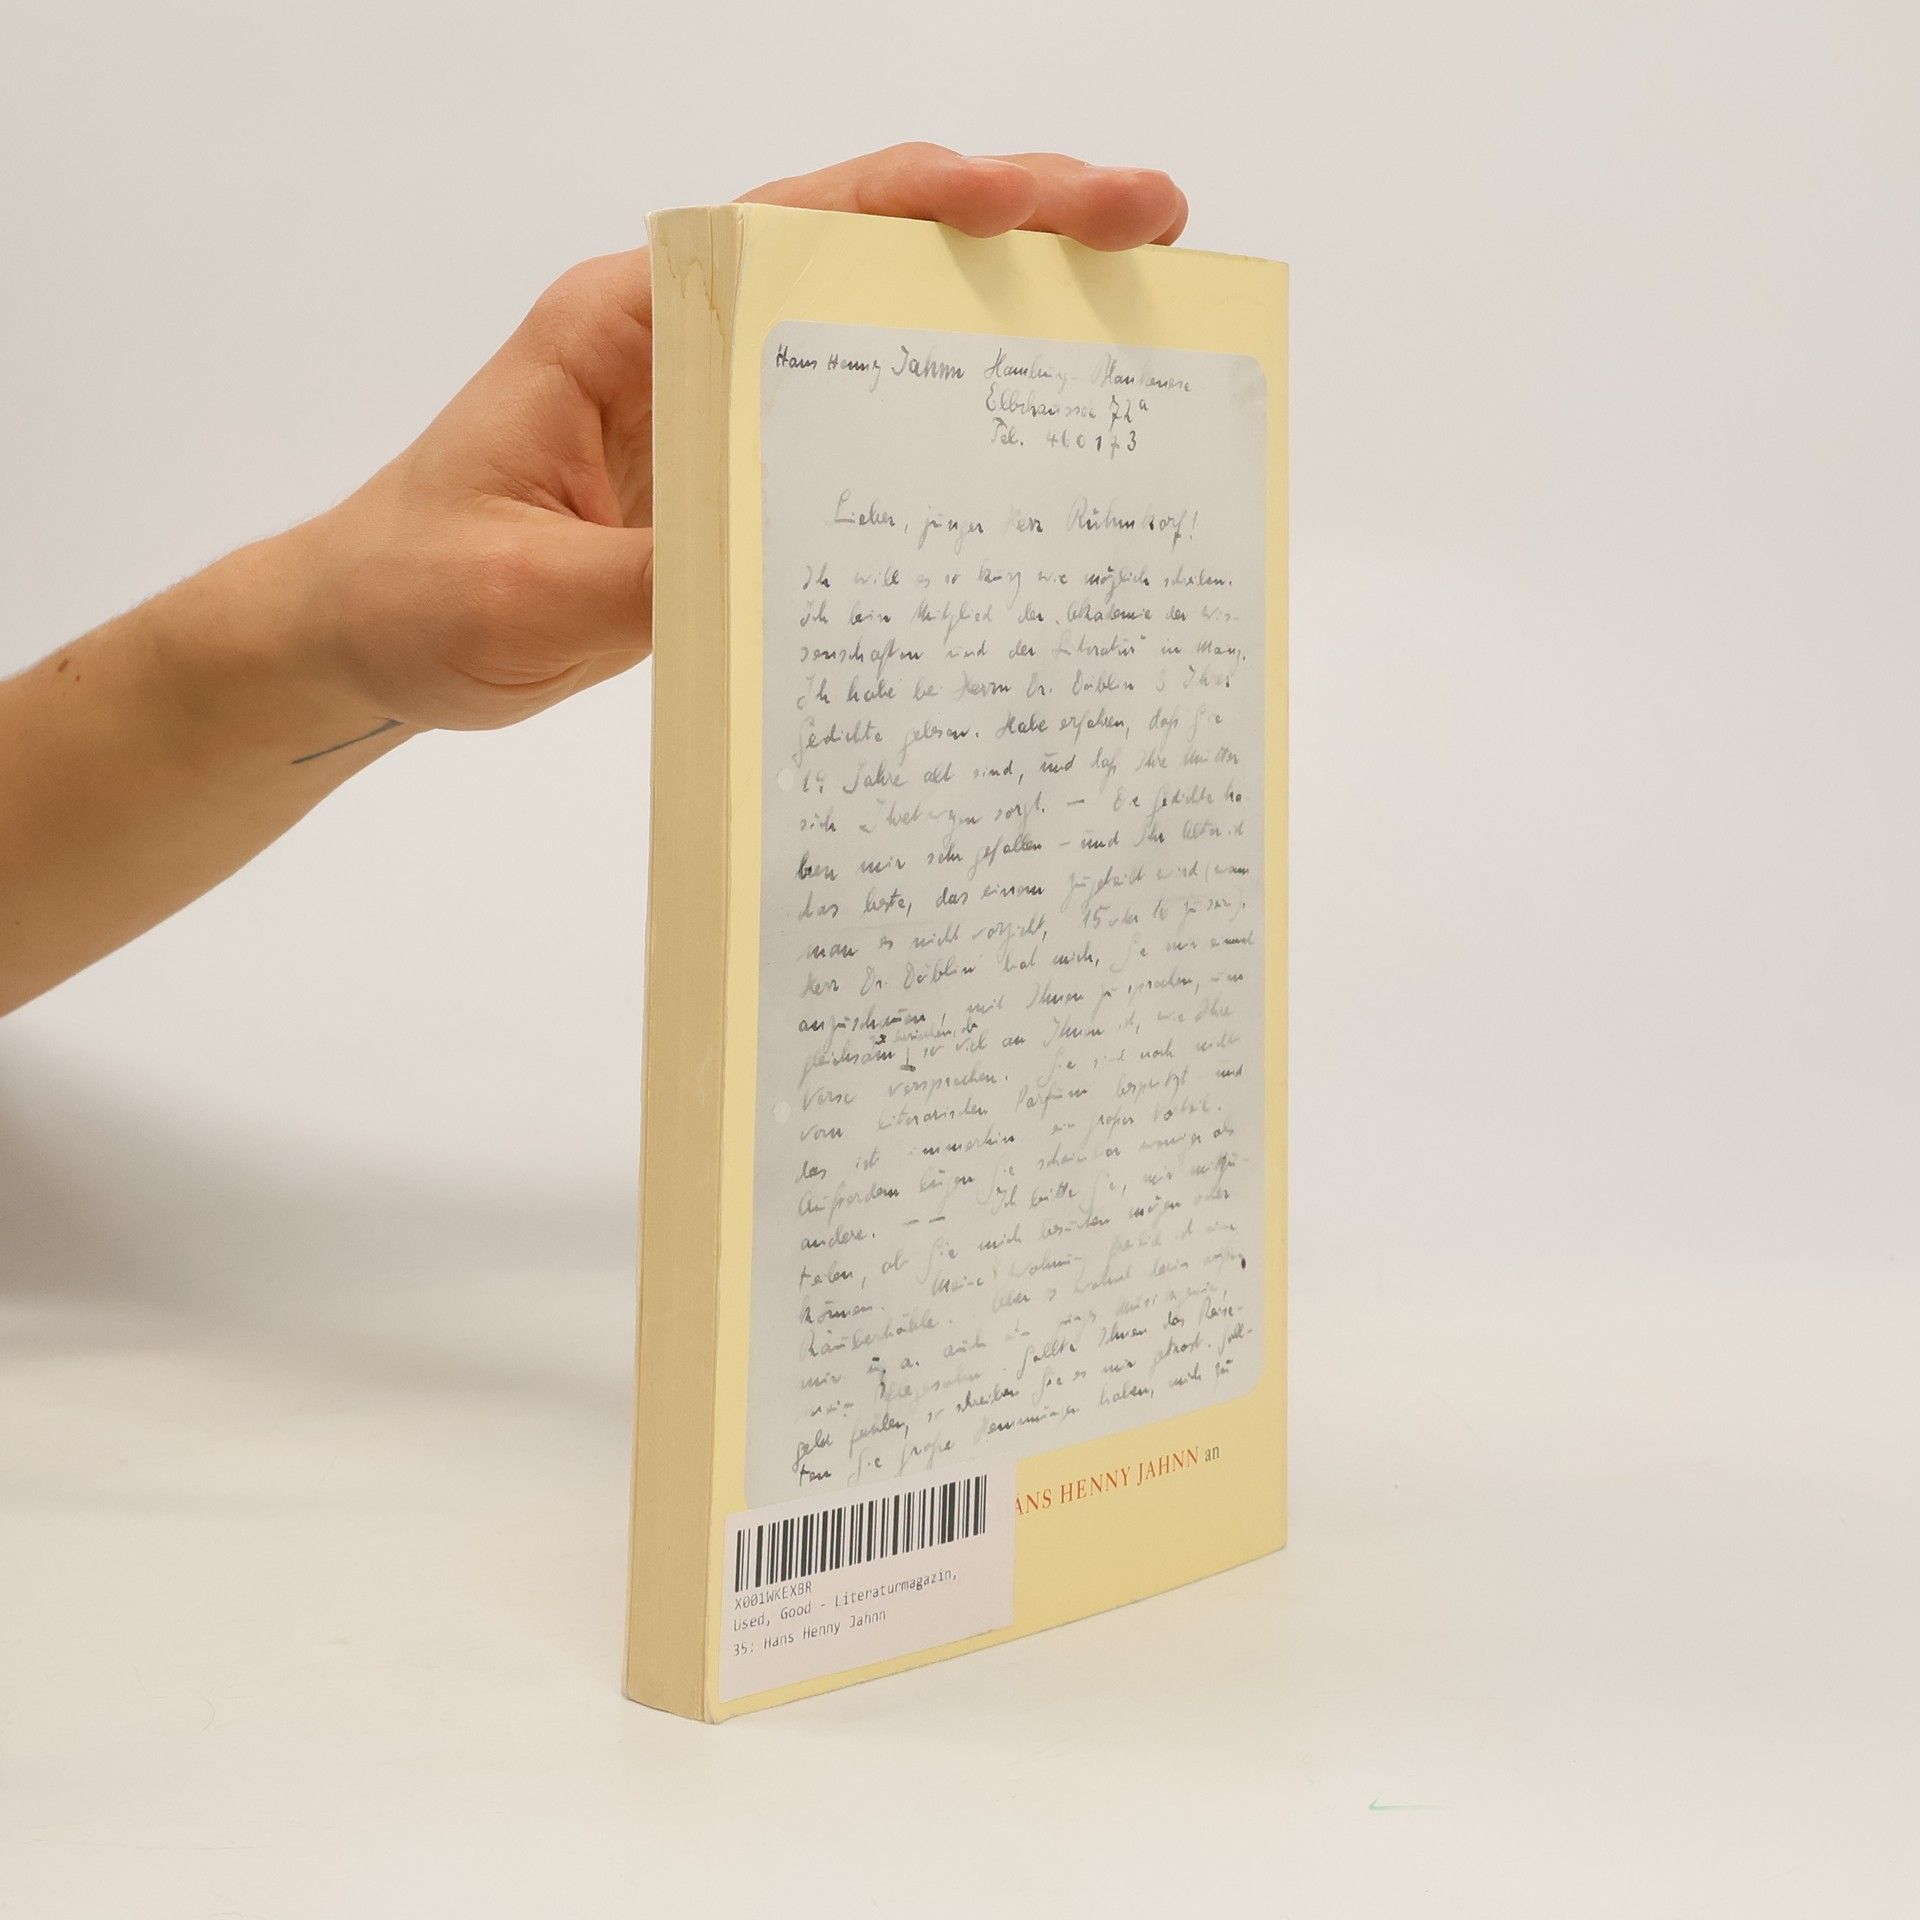 Hans Henny Jahnn Hamburg-Blankenese
Elbchaussee 72a
Tel. 460173
Lieber, junger Herr Rühmkorf!
Ich will es so kurz wie möglich schreiben.
Ich bin Mitglied der Akademie der Wis-
senschaften und der Literatur in Mainz.
Ich habe bei Herrn Dr. Döblin 3 Ihrer
Gedichte gelesen. Habe erfahren, daß Sie
Jahre alt sind, und daß Ihre Mutter
sich Ihretwegen sorgt. — Die Gedichte ha-
ben mir sehr gefallen – und Ihr Alter ist
das beste, das einem zugeteilt wird (wenn
man es nicht vorzieht, 15 oder 16 zu sein).
Herr Dr. Döblin bat mich, Sie mir einmal
anzuschauen, mit Ihnen zu sprechen, um
gleichsam zu erreichen, ob so viel an Ihnen ist, wie Ihre
Verse versprechen. Sie sind noch nicht
vom literarischen Parfüm bespritzt und
das ist immerhin ein großer Vorteil.
Außerdem lügen Sie scheinbar weniger als
andere. — — Ich bitte Sie, mir mitzu-
teilen, ob Sie mich besuchen mögen oder
können. Meine Wohnung freilich ist eine
Räuberhöhle. Aber es wohnt darin außer
mir u. a. auch ein junges Musikgenie,
mein Pflegesohn. Sollte Ihnen das Reise-
geld fehlen, so schreiben Sie es mir getrost. Soll-
ten Sie große Hemmungen haben, mich zu
HANS HENNY JAHNN an
X001WKEXBR
Used, Good - Literaturmagazin,
35: Hans Henny Jahnn